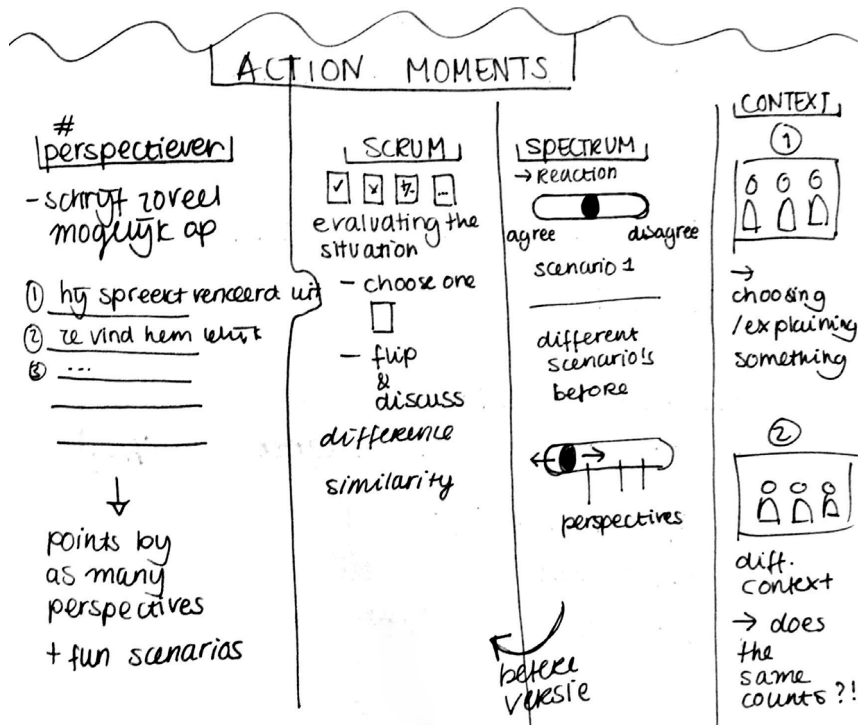 ACTION MOMENTS
#
perspectiever
- schrijf zoveel
mogelijk op
① hij spreekt verkeerd uit
② ze vind hem leuk
③ ...
points by
as many
perspectives
+ fun scenarios
SCRUM
evaluating the
situation
- choose one
- flip
&
discuss
difference
similarity
SPECTRUM
→ Reaction
agree disagree
scenario 1
different
scenario's
before
perspectives
betere
versie
CONTEXT
①
→
choosing
/explaining
something
②
diff.
context
→ does
the
same
counts?!